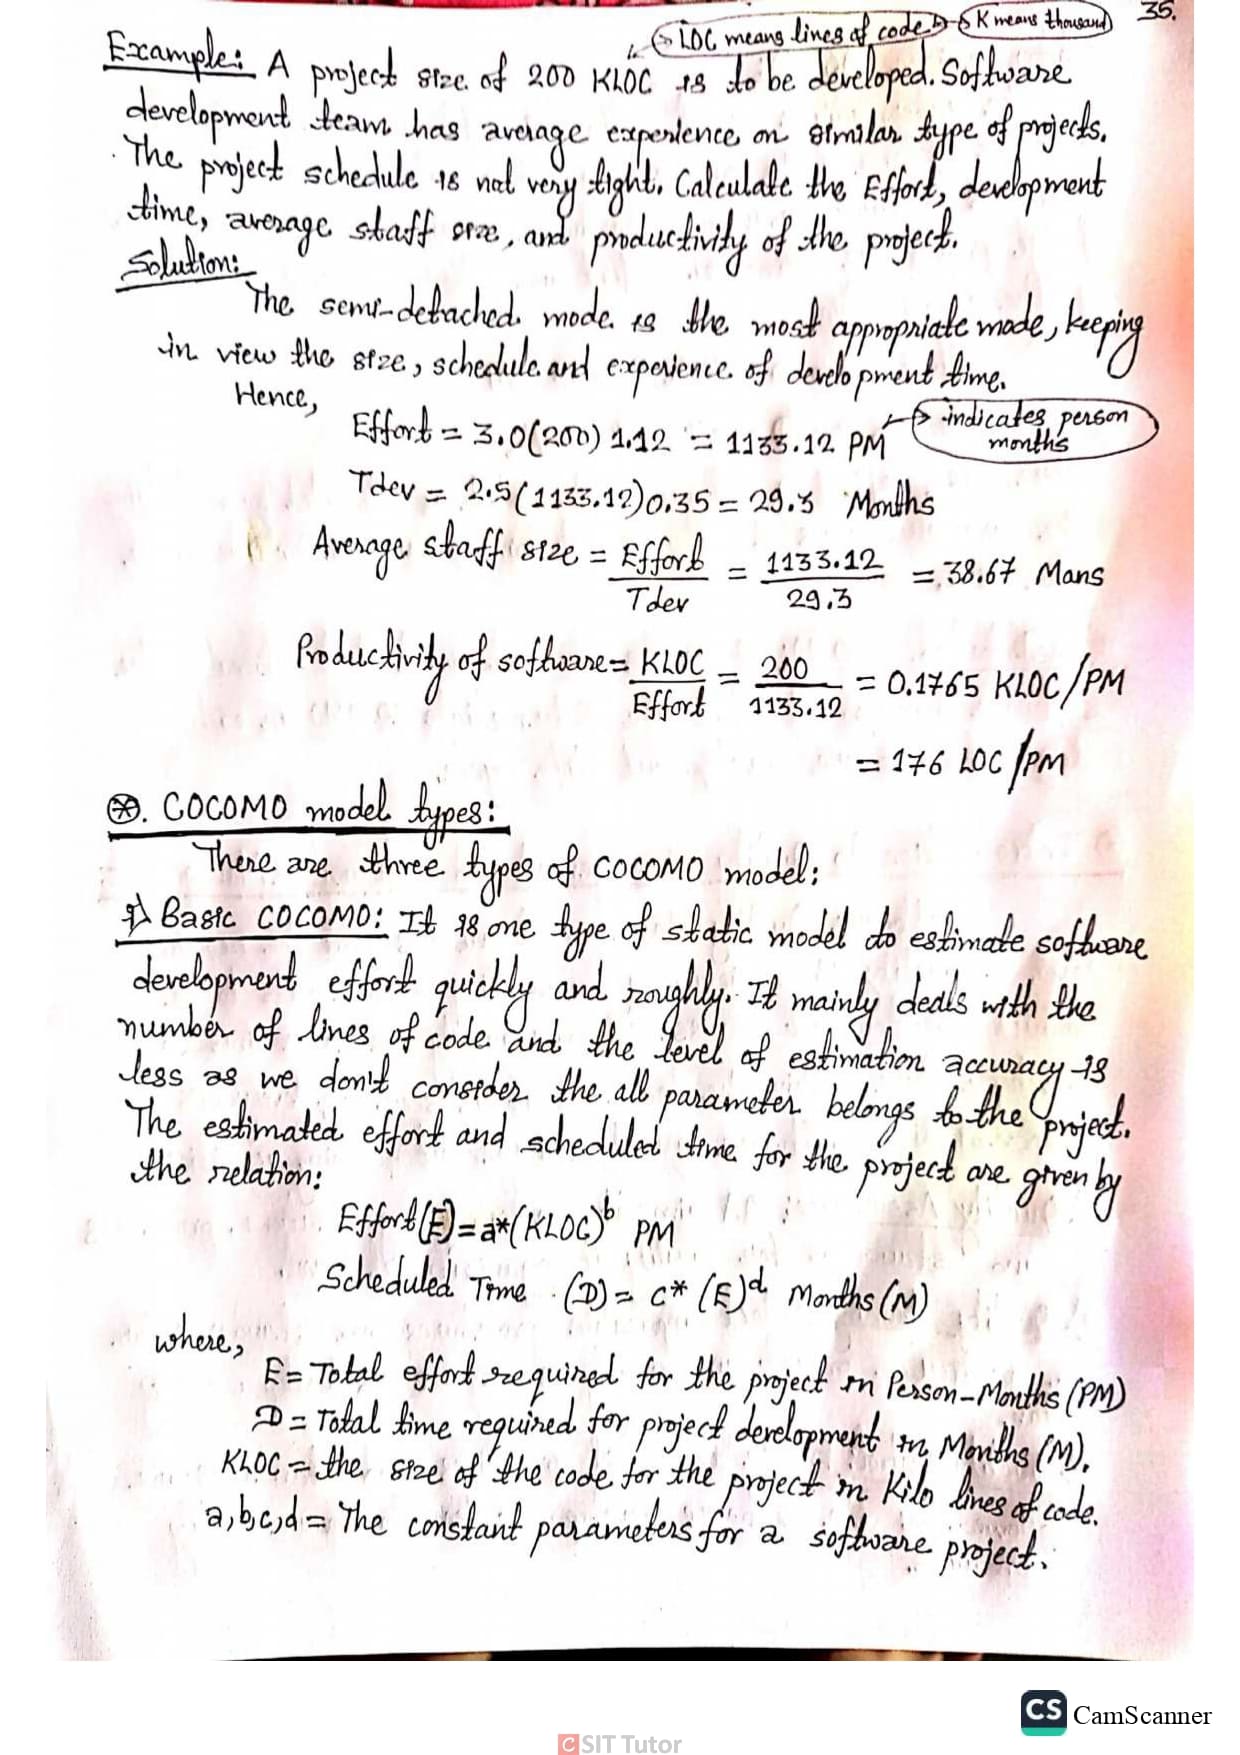 35.
LOC means lines of code. K means thousand
Example: A project size of 200 KLOC is to be developed. Software
development team has average experience on similar type of projects.
The project schedule is not very tight. Calculate the Effort, development
time, average staff size, and productivity of the project.
Solution:
The semi-detached mode is the most appropriate mode, keeping
in view the size, schedule and experience of development time.
Hence,
Effort = 3.0(200) 1.12 = 1133.12 PM → indicates person months
Tdev = 2.5(1133.12)0.35 = 29.3 Months
Average staff size = Effort/Tdev = 1133.12/29.3 = 38.67 Mans
Productivity of software = KLOC/Effort = 200/1133.12 = 0.1765 KLOC/PM
= 176 LOC/PM
⊛. COCOMO model types:
There are three types of COCOMO model:
i) Basic COCOMO: It is one type of static model to estimate software
development effort quickly and roughly. It mainly deals with the
number of lines of code and the level of estimation accuracy is
less as we don't consider the all parameter belongs to the project.
The estimated effort and scheduled time for the project are given by
the relation:
Effort(E) = a*(KLOC)^b PM
Scheduled Time (D) = c* (E)^d Months(M)
where,
E = Total effort required for the project in Person-Months (PM)
D = Total time required for project development in Months (M).
KLOC = the size of the code for the project in Kilo lines of code.
a,b,c,d = The constant parameters for a software project.
CS CamScanner
CSIT Tutor